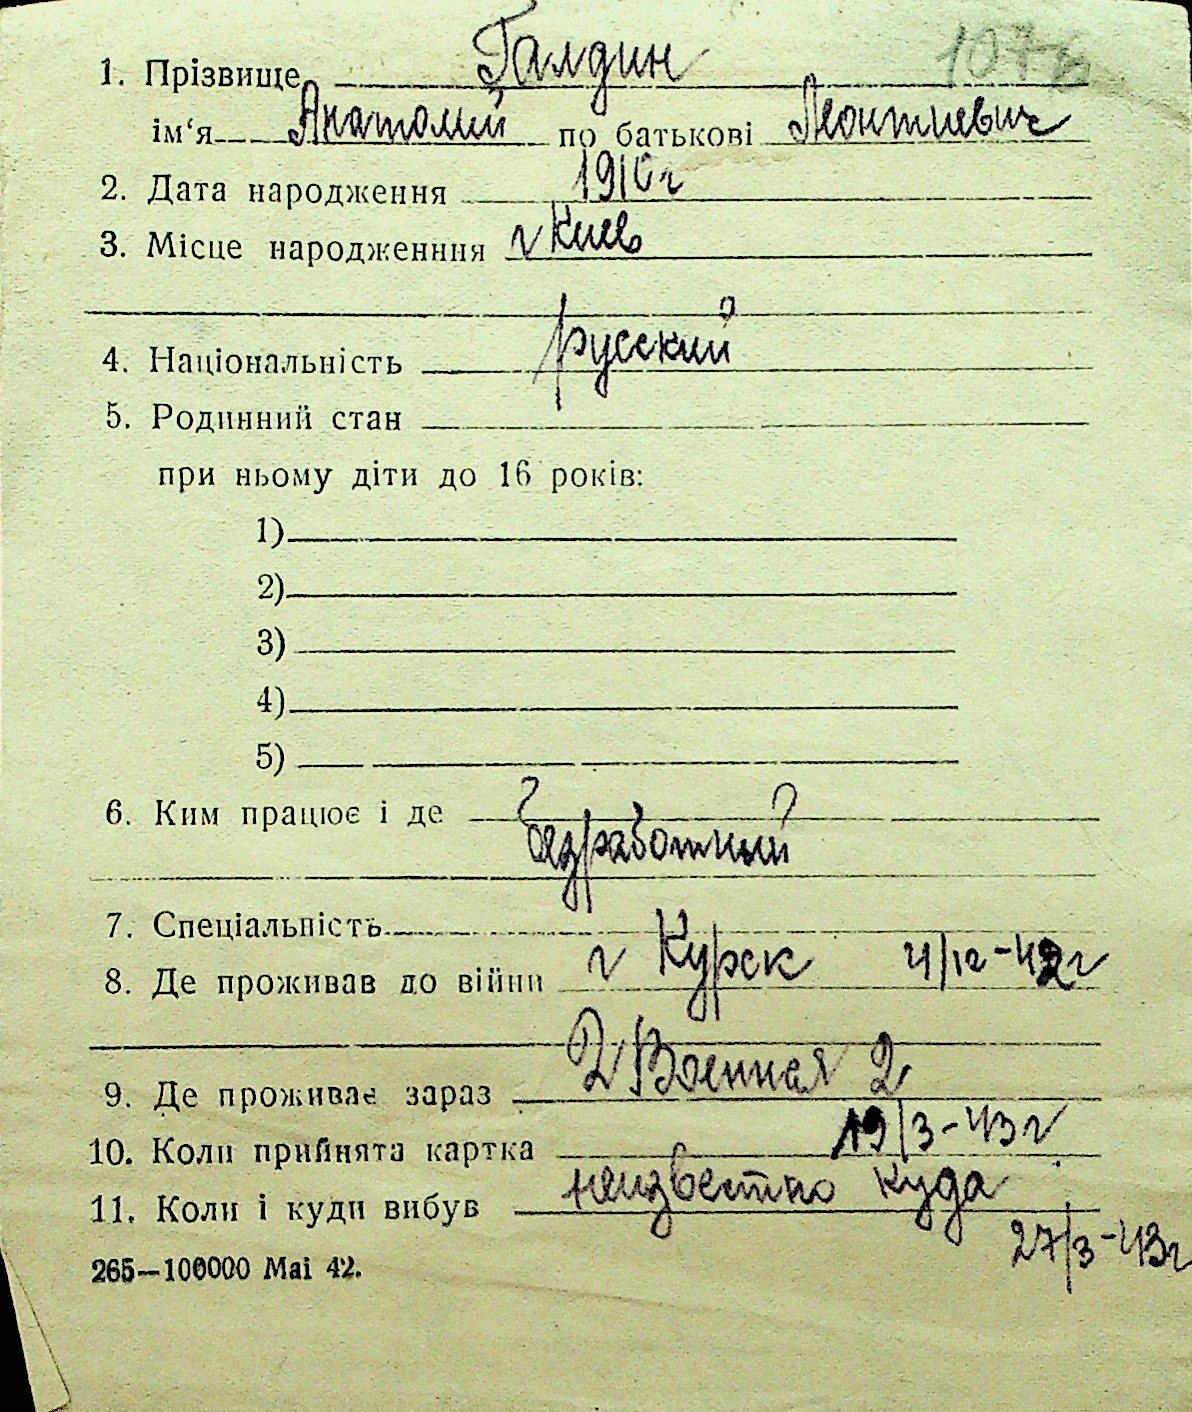 107
1. Прізвище Галдин
ім‘я Анатолий по батькові Леонтиевич
2. Дата народження 1910 г
3. Місце народженння г Киев
4. Національність русский
5. Родинний стан
при ньому діти до 16 років:
1)
2)
3)
4)
5)
6. Ким працює і де
безработный
7. Спеціальність
8. Де проживав до війни г Курск 4/12-42 г
9. Де проживає зараз 2 Военная 2
10. Коли прийнята картка 19/3-43 г
11. Коли і куди вибув неизвестно куда
27/3-43 г
265—100000 Mai 42.